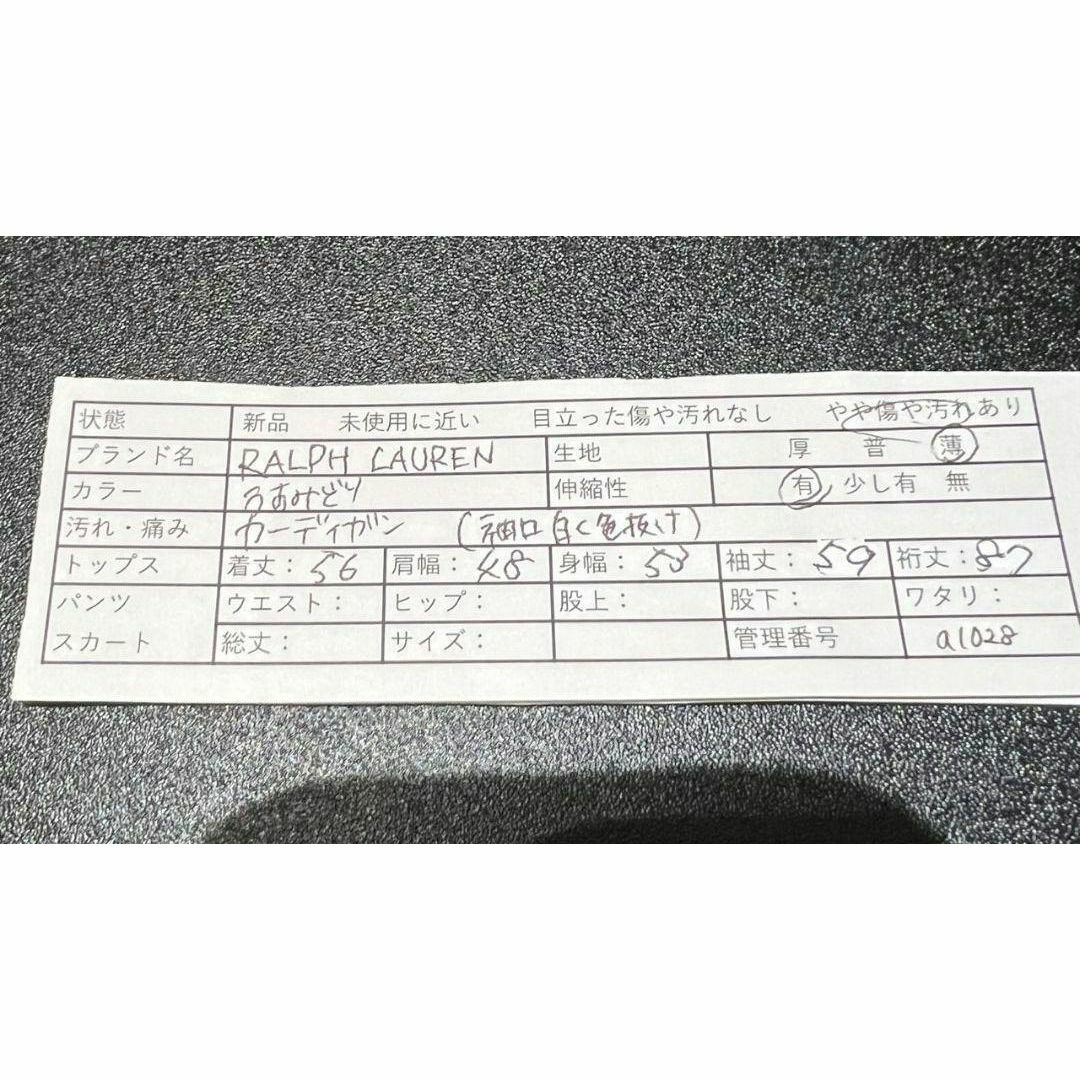 状態 新品 未使用に近い 目立った傷や汚れなし やや傷や汚れあり
ブランド名 RALPH LAUREN 生地 厚 普 薄
カラー うすみどり 伸縮性 有 少し有 無
汚れ・痛み カーディガン (袖口白く色抜け)
トップス 着丈:56 肩幅:48 身幅:53 袖丈:59 裄丈:87
パンツ ウエスト: ヒップ: 股上: 股下: ワタリ:
スカート 総丈: サイズ: 管理番号 a1028